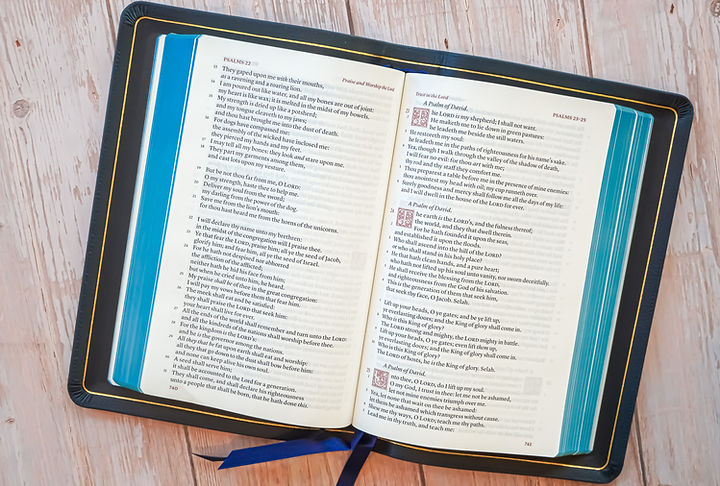 PSALMS 22
Praise and Worship the Lord
13 They gaped upon me with their mouths,
as a ravening and a roaring lion.
14 I am poured out like water, and all my bones are out of joint:
my heart is like wax; it is melted in the midst of my bowels.
15 My strength is dried up like a potsherd;
and my tongue cleaveth to my jaws;
and thou hast brought me into the dust of death.
16 For dogs have compassed me:
the assembly of the wicked have inclosed me:
they pierced my hands and my feet.
17 I may tell all my bones: they look and stare upon me.
18 They part my garments among them,
and cast lots upon my vesture.
19 But be not thou far from me, O LORD:
O my strength, haste thee to help me.
20 Deliver my soul from the sword;
my darling from the power of the dog.
21 Save me from the lion's mouth:
for thou hast heard me from the horns of the unicorns.
22 I will declare thy name unto my brethren:
in the midst of the congregation will I praise thee.
23 Ye that fear the LORD, praise him; all ye the seed of Jacob,
glorify him; and fear him, all ye the seed of Israel.
24 For he hath not despised nor abhorred
the affliction of the afflicted;
neither hath he hid his face from him;
but when he cried unto him, he heard.
25 My praise shall be of thee in the great congregation:
I will pay my vows before them that fear him.
26 The meek shall eat and be satisfied:
they shall praise the LORD that seek him:
your heart shall live for ever.
27 All the ends of the world shall remember and turn unto the LORD:
and all the kindreds of the nations shall worship before thee.
28 For the kingdom is the LORD's:
and he is the governor among the nations.
29 All they that be fat upon earth shall eat and worship:
all they that go down to the dust shall bow before him:
and none can keep alive his own soul.
30 A seed shall serve him;
it shall be accounted to the Lord for a generation.
31 They shall come, and shall declare his righteousness
unto a people that shall be born, that he hath done this.
740
Trust in the Lord
PSALMS 23–25
A Psalm of David.
23 The LORD is my shepherd; I shall not want.
2 He maketh me to lie down in green pastures:
he leadeth me beside the still waters.
3 He restoreth my soul:
he leadeth me in the paths of righteousness for his name's sake.
4 Yea, though I walk through the valley of the shadow of death,
I will fear no evil: for thou art with me;
thy rod and thy staff they comfort me.
5 Thou preparest a table before me in the presence of mine enemies:
thou anointest my head with oil; my cup runneth over.
6 Surely goodness and mercy shall follow me all the days of my life:
and I will dwell in the house of the LORD for ever.
A Psalm of David.
24 The earth is the LORD's, and the fulness thereof;
the world, and they that dwell therein.
2 For he hath founded it upon the seas,
and established it upon the floods.
3 Who shall ascend into the hill of the LORD?
or who shall stand in his holy place?
4 He that hath clean hands, and a pure heart;
who hath not lifted up his soul unto vanity, nor sworn deceitfully.
5 He shall receive the blessing from the LORD,
and righteousness from the God of his salvation.
6 This is the generation of them that seek him,
that seek thy face, O Jacob. Selah.
7 Lift up your heads, O ye gates; and be ye lift up,
ye everlasting doors; and the King of glory shall come in.
8 Who is this King of glory?
The LORD strong and mighty, the LORD mighty in battle.
9 Lift up your heads, O ye gates; even lift them up,
ye everlasting doors; and the King of glory shall come in.
10 Who is this King of glory?
The LORD of hosts, he is the King of glory. Selah.
A Psalm of David.
25 Unto thee, O LORD, do I lift up my soul.
2 O my God, I trust in thee: let me not be ashamed,
let not mine enemies triumph over me.
3 Yea, let none that wait on thee be ashamed:
let them be ashamed which transgress without cause.
4 Shew me thy ways, O LORD; teach me thy paths.
5 Lead me in thy truth, and teach me:
741